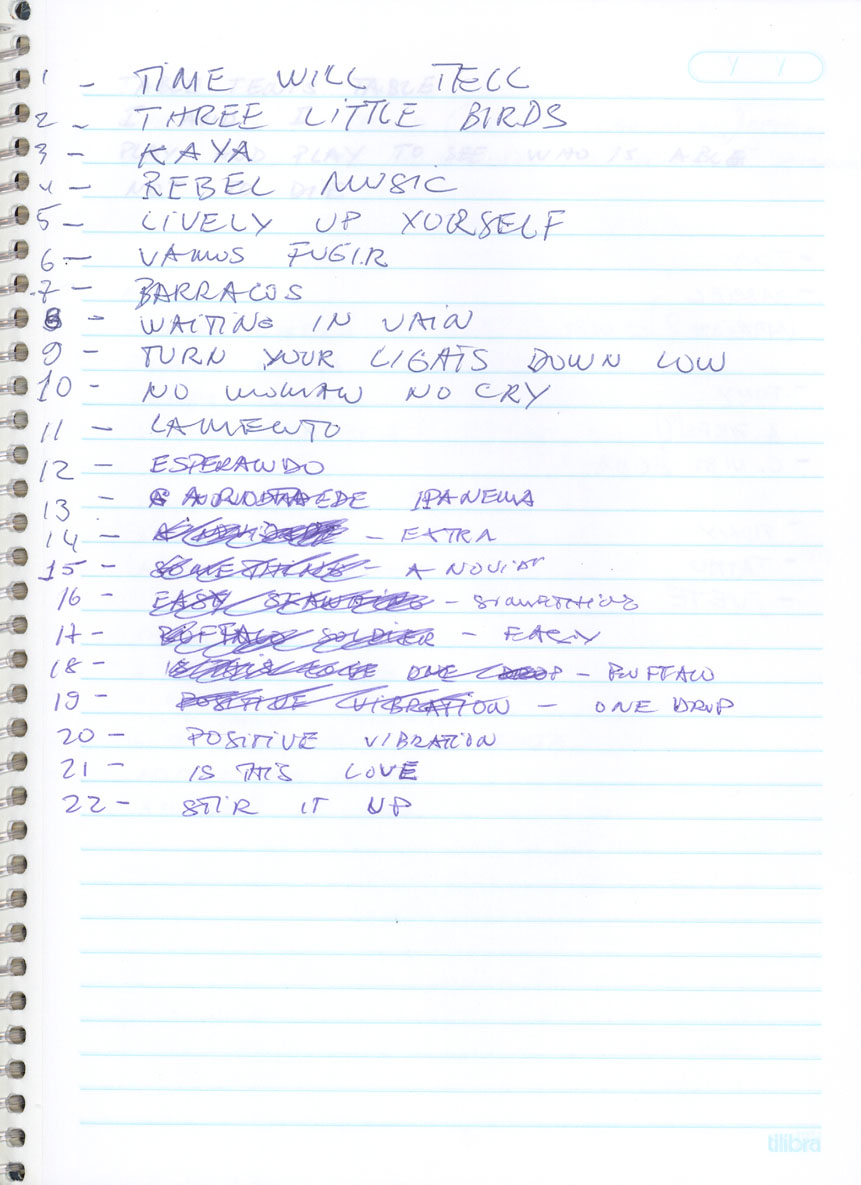 1 - TIME WILL TELL
2 - THREE LITTLE BIRDS
3 - KAYA
4 - REBEL MUSIC
5 - LIVELY UP YOURSELF
6 - VAMOS FUGIR
7 - BARRACOS
8 - WAITING IN VAIN
9 - TURN YOUR LIGHTS DOWN LOW
10 - NO WOMAN NO CRY
11 - LAMENTO
12 - ESPERANDO
13 - DE IPANEMA
14 - - EXTRA
15 - SOMETHING - A NOVIDA
16 - EASY SKANKING - SOMETHING
17 - BUFFALO SOLDIER - EASY
18 - IS THIS LOVE ONE DROP - BUFFALO
19 - POSITIVE VIBRATION - ONE DROP
20 - POSITIVE VIBRATION
21 - IS THIS LOVE
22 - STIR IT UP
tilibra